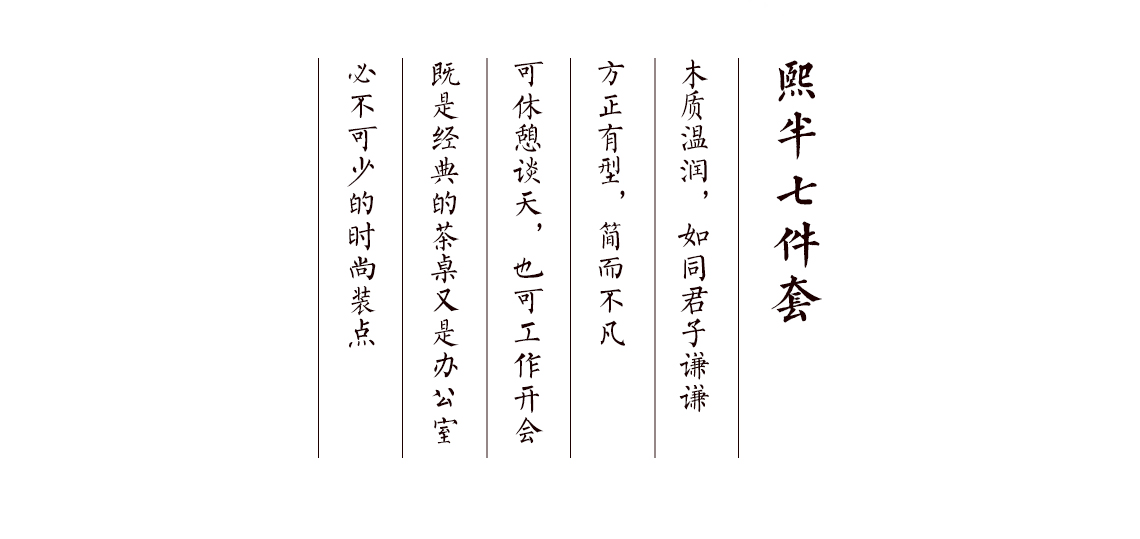 熙半七件套
木质温润，如同君子谦谦
方正有型，简而不凡
可休憩谈天，也可工作开会
既是经典的茶桌又是办公室
必不可少的时尚装点